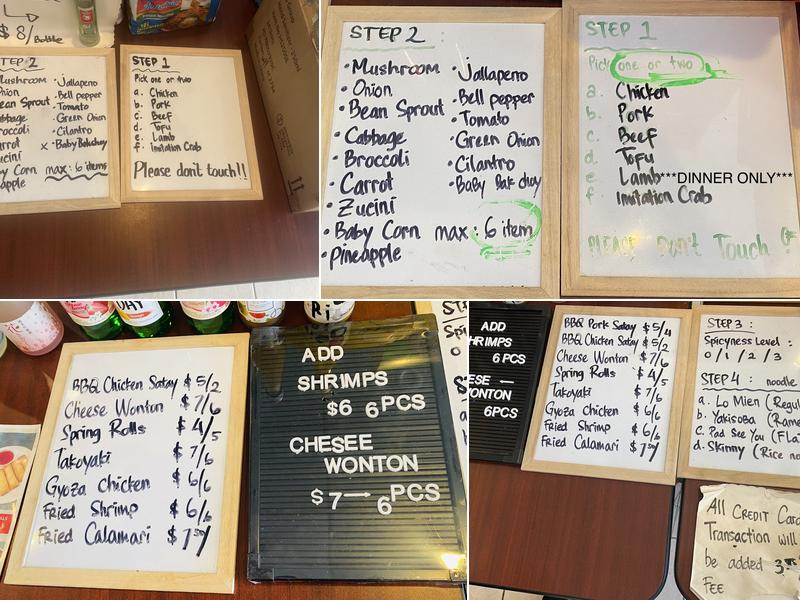 $8/Bottle
STEP 2
Mushroom
Onion
Bean Sprout
Cabbage
Broccoli
Carrot
Zucini
Baby Corn
Pineapple
• Jalapeno
• Bell pepper
• Tomato
• Green Onion
• Cilantro
x • Baby Bok choy
max: 6 items
STEP 1
Pick one or two
a. Chicken
b. Pork
c. Beef
d. Tofu
e. Lamb
f. Imitation Crab
Please don't touch!!
STEP 2 :
• Mushroom
• Onion
• Bean Sprout
• Cabbage
• Broccoli
• Carrot
• Zucini
• Baby Corn
• Pineapple
• Jallapeno
• Bell pepper
• Tomato
• Green Onion
• Cilantro
• Baby Bok choy
max : 6 item
STEP 1
Pick one or two
a. Chicken
b. Pork
c. Beef
d. Tofu
e. Lamb***DINNER ONLY***
f. Imitation Crab
PLEASE Don't Touch
BBQ Chicken Satay $5/2
Cheese Wonton $7/6
Spring Rolls $4/5
Takoyaki $7/6
Gyoza chicken $6/6
Fried Shrimp $6/6
Fried Calamari $7.50/
ADD
SHRIMPS
$6 6PCS
CHESEE
WONTON
$7 → 6PCS
ADD
SHRIMPS
6PCS
ESE
WONTON
6PCS
BBQ Pork Satay $5/4
BBQ Chicken Satay $5/2
Cheese Wonton $7/6
Spring Rolls $4/5
Takoyaki $7/6
Gyoza chicken $6/6
Fried Shrimp $6/6
Fried Calamari $7.50/
STEP 3 :
Spicyness Level :
0/1/2/3
STEP 4 : noodle
a. Lo Mien (Regul
b. Yakisoba (Rame
c. Pad See You (Fla
d. Skinny (Rice no
All CREDIT Card
Transaction will
be added 3
FEE